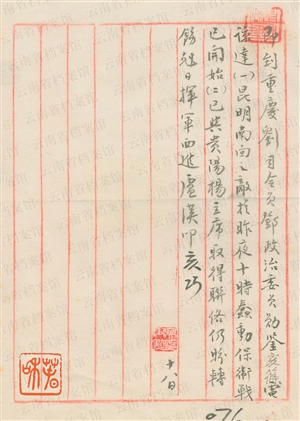 即到重慶劉司令員鄧政治委員勛鑒亥篠電
諒達(一)昆明南向之敵於昨夜十時蠢動保衛戰
已開始(二)已與貴陽楊主席取得聯絡仍盼轉
飭尅日揮軍西進盧漢叩亥巧
十八日
076